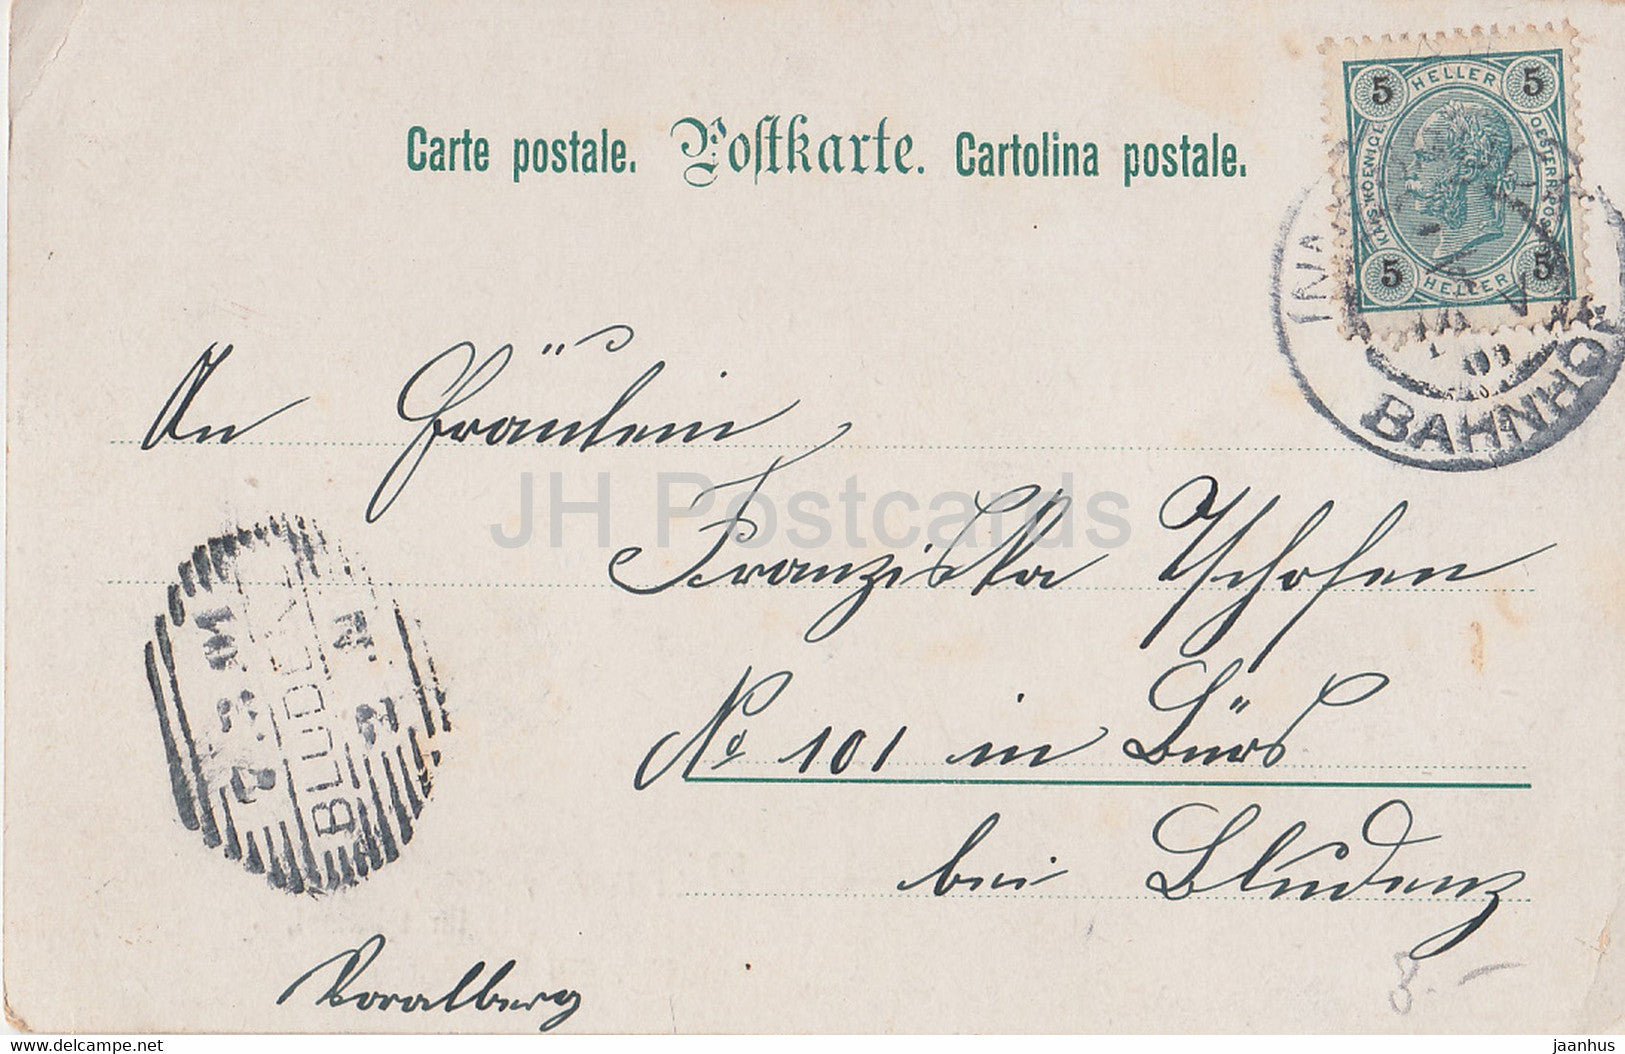 Carte postale. Postkarte. Cartolina postale.
5 HELLER 5
KAIS. KOENIGL. OESTERR. POST
5 HELLER 5
BAHNHOF
An Fräulein
Franziska Tschofen
No 101 in Bürs
bei Bludenz
Vorarlberg
BLUDENZ
JH Postcards
3.-
© www.delcampe.net
jaanhus